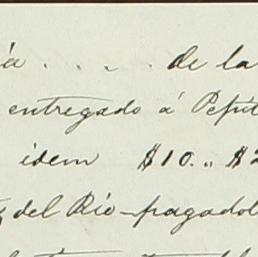 á . . . . . de la
entregado á Pepit
idem $10.. $2
del Rio - pagadol